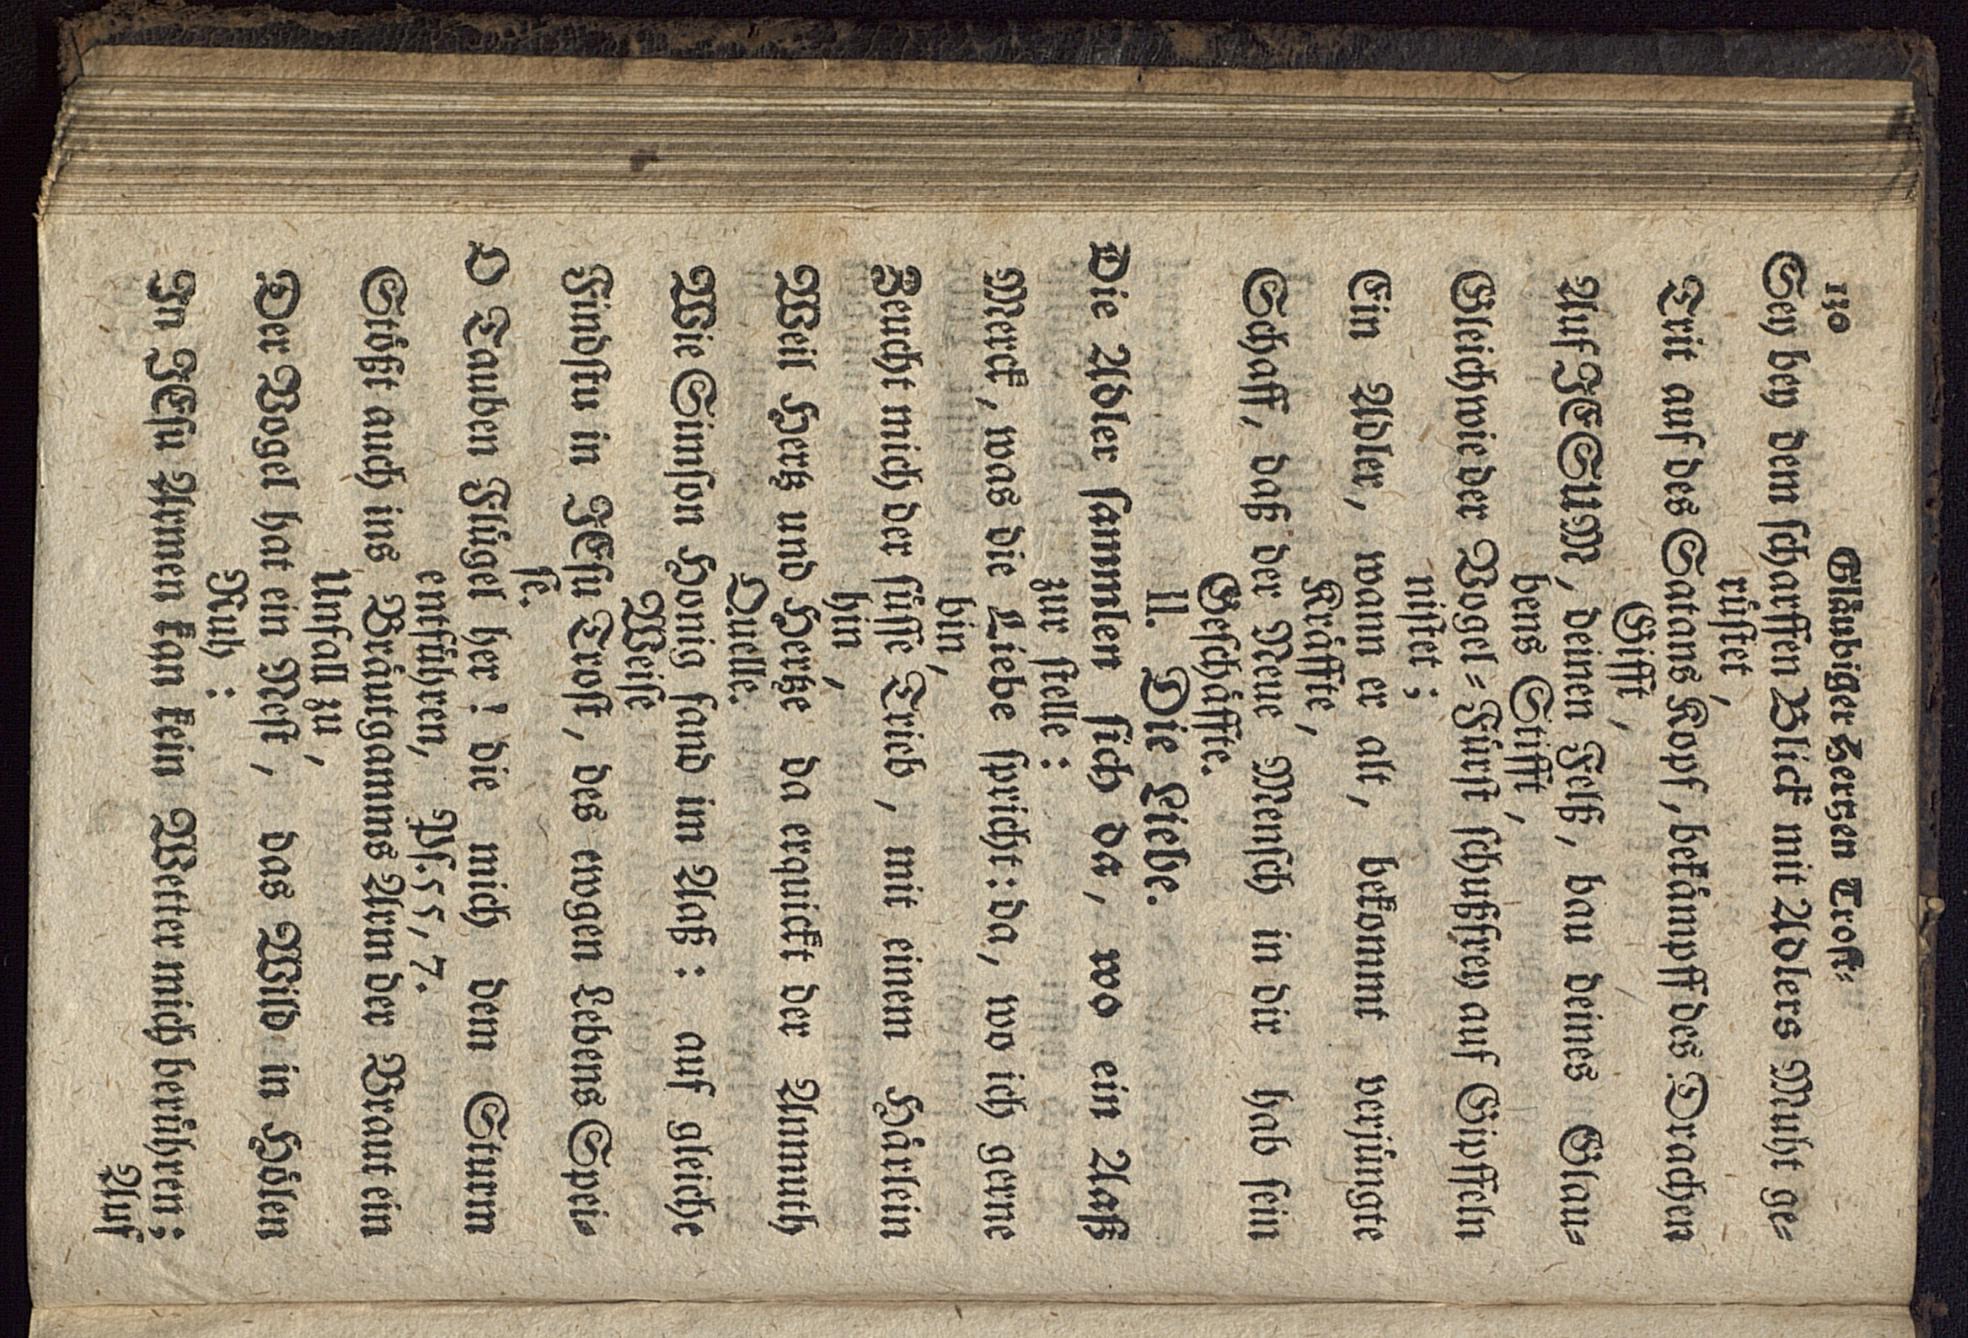 130 Gläubiger Hertzen Trost-
Sey bey dem scharffen Blick mit Adlers Muht ge-
rüstet,
Trit auf des Satans Kopf, bekämpff des Drachen
Gifft,
Auf JESUM, deinen Felß, bau deines Glau-
bens Stifft,
Gleichwie der Vogel-Fürst schußfrey auf Gipffeln
nistet;
Ein Adler, wann er alt, bekommt verjüngte
Kräffte,
Schaff, daß der Neue Mensch in dir hab sein
Geschäffte.
II. Die Liebe.
Die Adler samlen sich da, wo ein Aaß
zur stelle:
Merck, was die Liebe spricht: da, wo ich gerne
bin,
Zeucht mich der süsse Trieb, mit einem Härlein
hin,
Weil Hertz und Hertze da erquickt der Anmuth
Quelle.
Wie Simson Honig fand im Aaß: auf gleiche
Weise
Findstu in JEsu Trost, des ewgen Lebens Spei-
se.
O Tauben Flügel her! die mich dem Sturm
entführen, Ps. 55, 7.
Stößt auch ins Bräutgamms Arm der Braut ein
Unfall zu,
Der Vogel hat ein Nest, das Wild in Hölen
Ruh:
In JEsu Armen kan kein Wetter mich berühren;
Auf